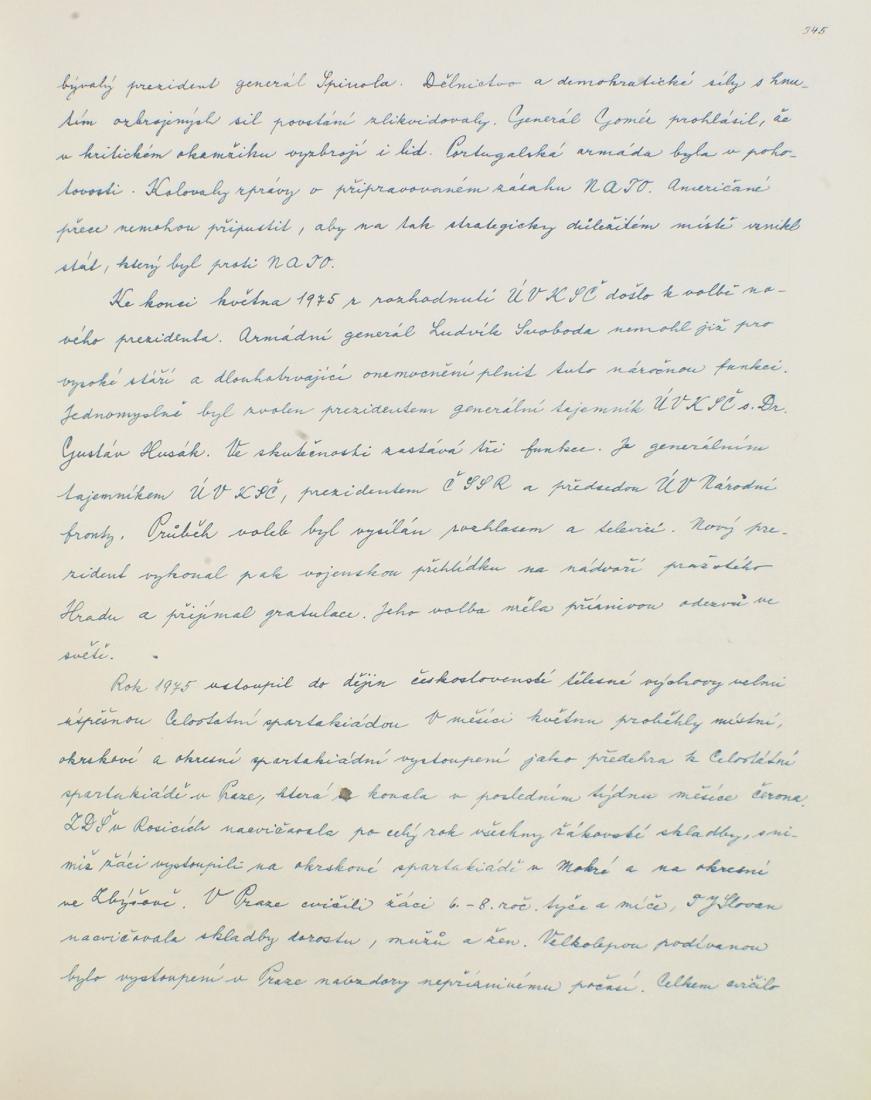 345
bývalý prezident generál Spinola. Dělnictvo a demokratické síly s hnu-
tím ozbrojených sil povstání zlikvidovaly. Generál Goméz prohlásil, že
v kritickém okamžiku vyzbrojí i lid. Portugalská armáda byla v poho-
tovosti. Kolovaly zprávy o připravovaném zásahu NATO. Američané
přece nemohou připustit, aby na tak strategicky důležitém místě vznikl
stát, který byl proti NATO.
Ke konci května 1975 z rozhodnutí ÚV KSČ došlo k volbě no-
vého prezidenta. Armádní generál Ludvík Svoboda nemohl již pro
vysoké stáří a dlouhotrvající onemocnění plnit tuto náročnou funkci.
Jednomyslně byl zvolen prezidentem generální tajemník ÚV KSČ s. Dr.
Gustáv Husák. Ve skutečnosti zastává tři funkce. Je generálním
tajemníkem ÚV KSČ, prezidentem ČSSR a předsedou ÚV Národní
fronty. Průběh voleb byl vysílán rozhlasem a televizí. Nový pre-
zident vykonal pak vojenskou přehlídku na nádvoří pražského
Hradu a přijímal gratulace. Jeho volba měla příznivou odezvu ve
světě.
Rok 1975 vstoupil do dějin československé tělesné výchovy velmi
úspěšnou Celostátní spartakiádou V měsíci květnu proběhly místní,
okrskové a okresní spartakiádní vystoupení jako předehra k Celostátní
spartakiádě v Praze, která konala v posledním týdnu měsíce června.
ZDŠ v Rosicích nacvičovala po celý rok všechny žákovské skladby, s ni-
miž žáci vystoupili na okrskové spartakiádě v Mokré a na okresní
ve Zbýšově. V Praze cvičili žáci 6.-8. roč. tyče a míče, TJ Slovan
nacvičovala skladby dorostu, mužů a žen. Velkolepou podívanou
bylo vystoupení v Praze navzdory nepříznivému počasí. Celkem cvičilo